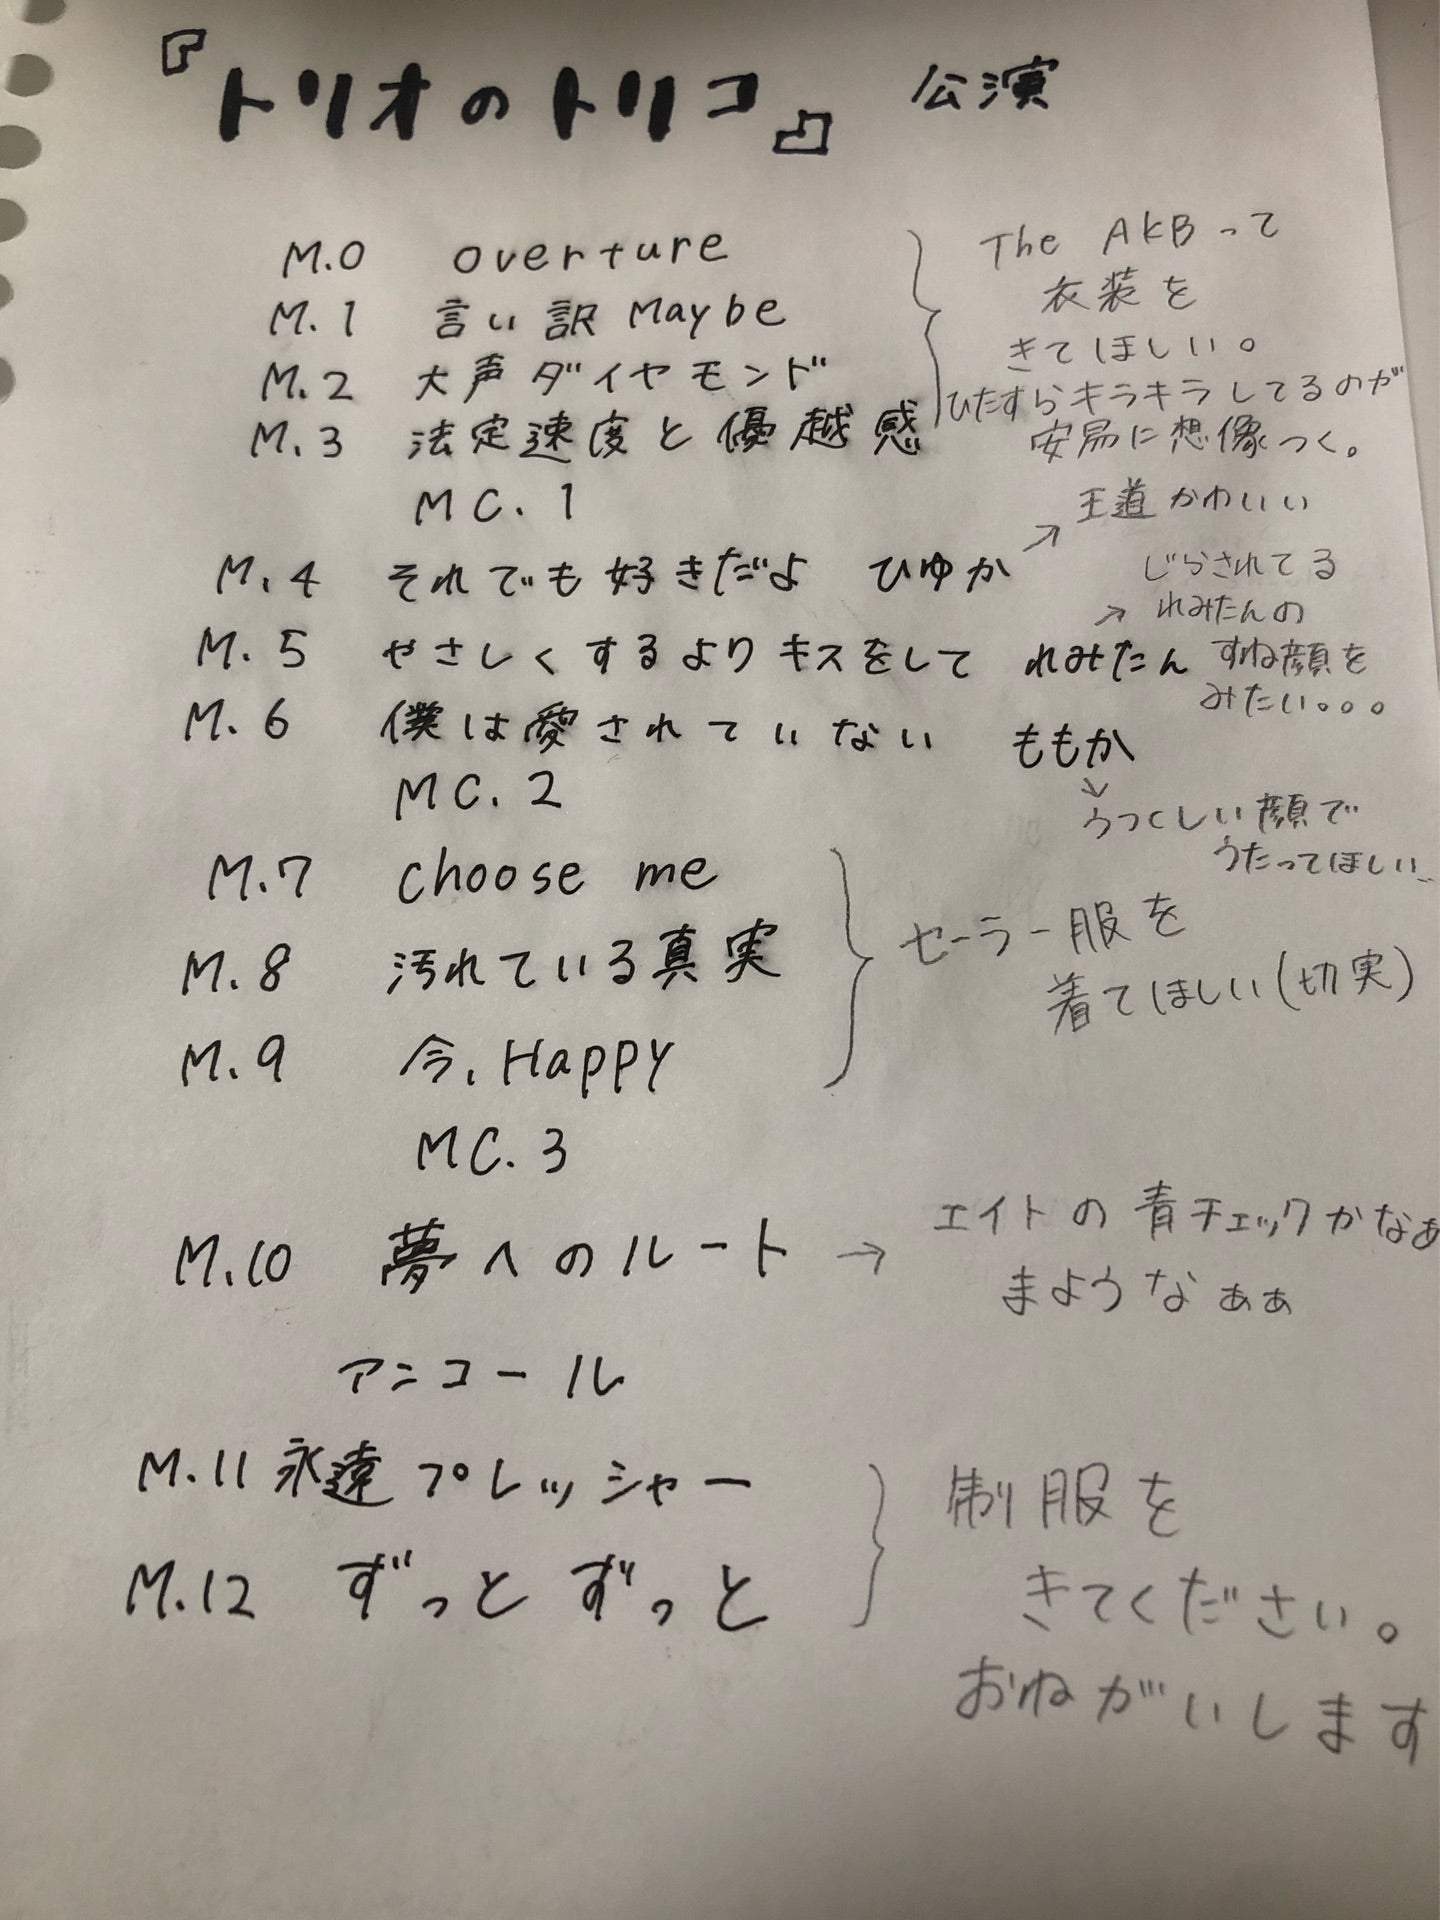 『トリオのトリコ』 公演
M.0 overture
M.1 言い訳Maybe
M.2 大声ダイヤモンド
M.3 法定速度と優越感
The AKBって
衣装を
きてほしい。
ひたすらキラキラしてるのが
安易に想像つく。
MC.1
王道かわいい
M.4 それでも好きだよ ひゆか
じらされてる
れみたんの
すね顔を
みたい。。。
M.5 やさしくするよりキスをして れみたん
M.6 僕は愛されていない ももか
うつくしい顔で
うたってほしい
MC.2
M.7 choose me
M.8 汚れている真実
M.9 今、Happy
セーラー服を
着てほしい(切実)
MC.3
M.10 夢へのルート
エイトの青チェックかなぁ
まようなぁぁ
アンコール
M.11 永遠プレッシャー
M.12 ずっと ずっと
制服を
きてください。
おねがいします